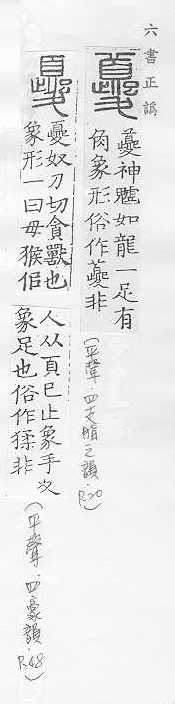 六書正譌
夔
夔神魖如龍一足有
角象形俗作蘷非
(平聲.四支脂之韻.P.20)
夒
夒奴刀切貪獸也
象形一曰母猴佀
人从頁巳止象手夊
象足也俗作猱非
(平聲.四豪韻.P.48)